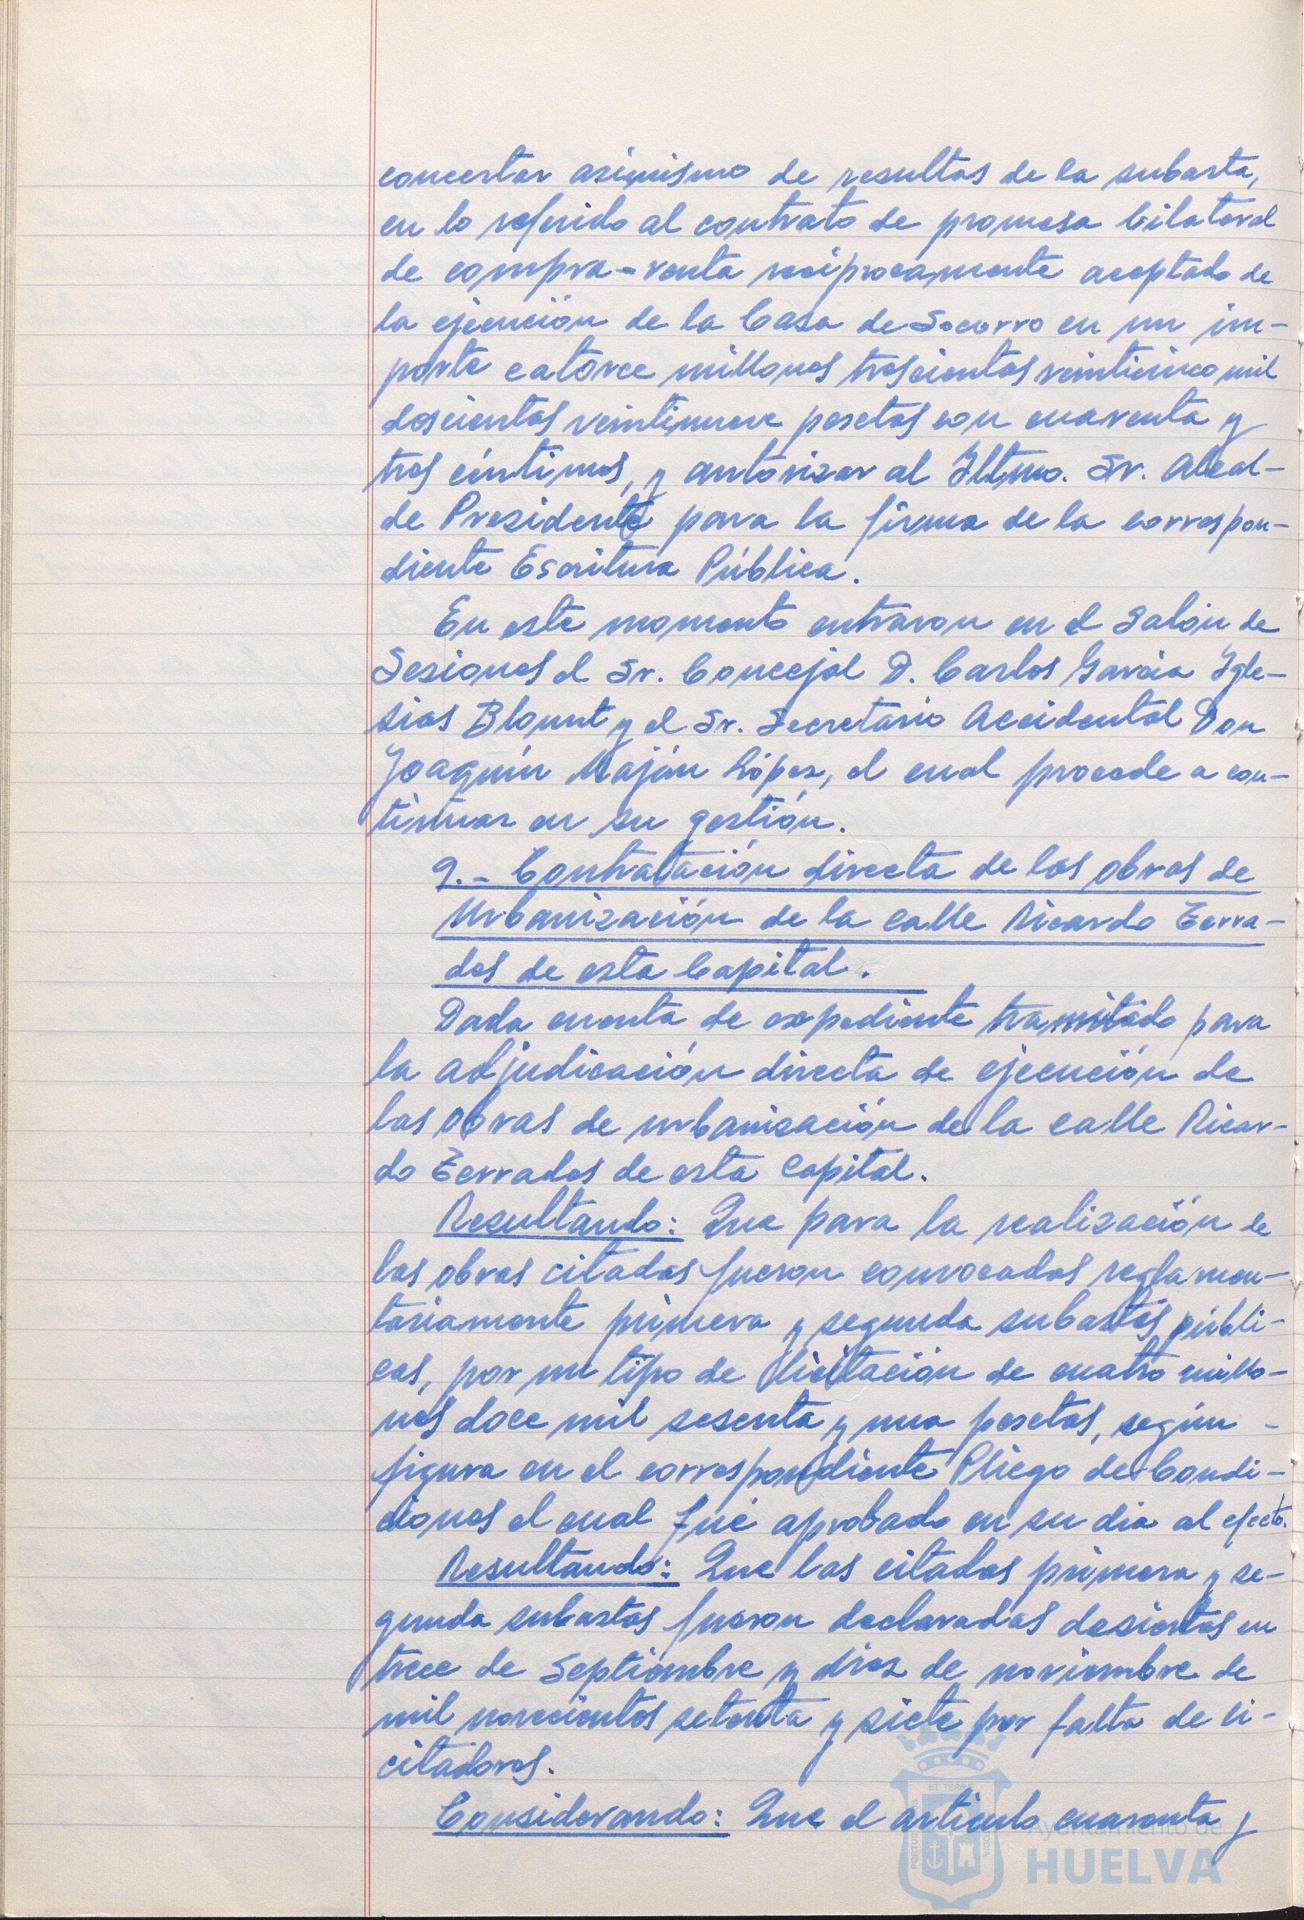 concertar asimismo de resultas de la subasta,
en lo referido al contrato de promesa bilateral
de compra-venta recíprocamente aceptado de
la ejecución de la Casa de Socorro en un im-
porte catorce millones trescientos veinticinco mil
doscientas veintinueve pesetas con cuarenta y
tres céntimos, y autorizar al Iltmo. Sr. Alcal-
de Presidente para la firma de la correspon-
diente Escritura Pública.
En este momento entraron en el Salón de
Sesiones el Sr. Concejal D. Carlos García Igle-
sias Blount y el Sr. Secretario Accidental Don
Joaquín Maján López, el cual procede a con-
tinuar en su gestión.
9.- Contratación directa de las obras de
Urbanización de la calle Ricardo Terra-
dos de esta Capital.
Dada cuenta de expediente tramitado para
la adjudicación directa de ejecución de
las obras de urbanización de la calle Ricar-
do Terrados de esta Capital.
Resultando: Que para la realización de
las obras citadas fueron convocadas reglamen-
tariamente primera y segunda subastas públi-
cas, por un tipo de licitación de cuatro millo-
nes doce mil sesenta y una pesetas, según -
figura en el correspondiente Pliego de Condi-
ciones el cual fué aprobado en su día al efecto.
Resultando: Que las citadas primera y se-
gunda subastas fueron declaradas desiertas en
trece de Septiembre y diez de noviembre de
mil novecientos setenta y siete por falta de li-
citadores.
Considerando: Que el artículo cuarenta y
Ayuntamiento de
HUELVA